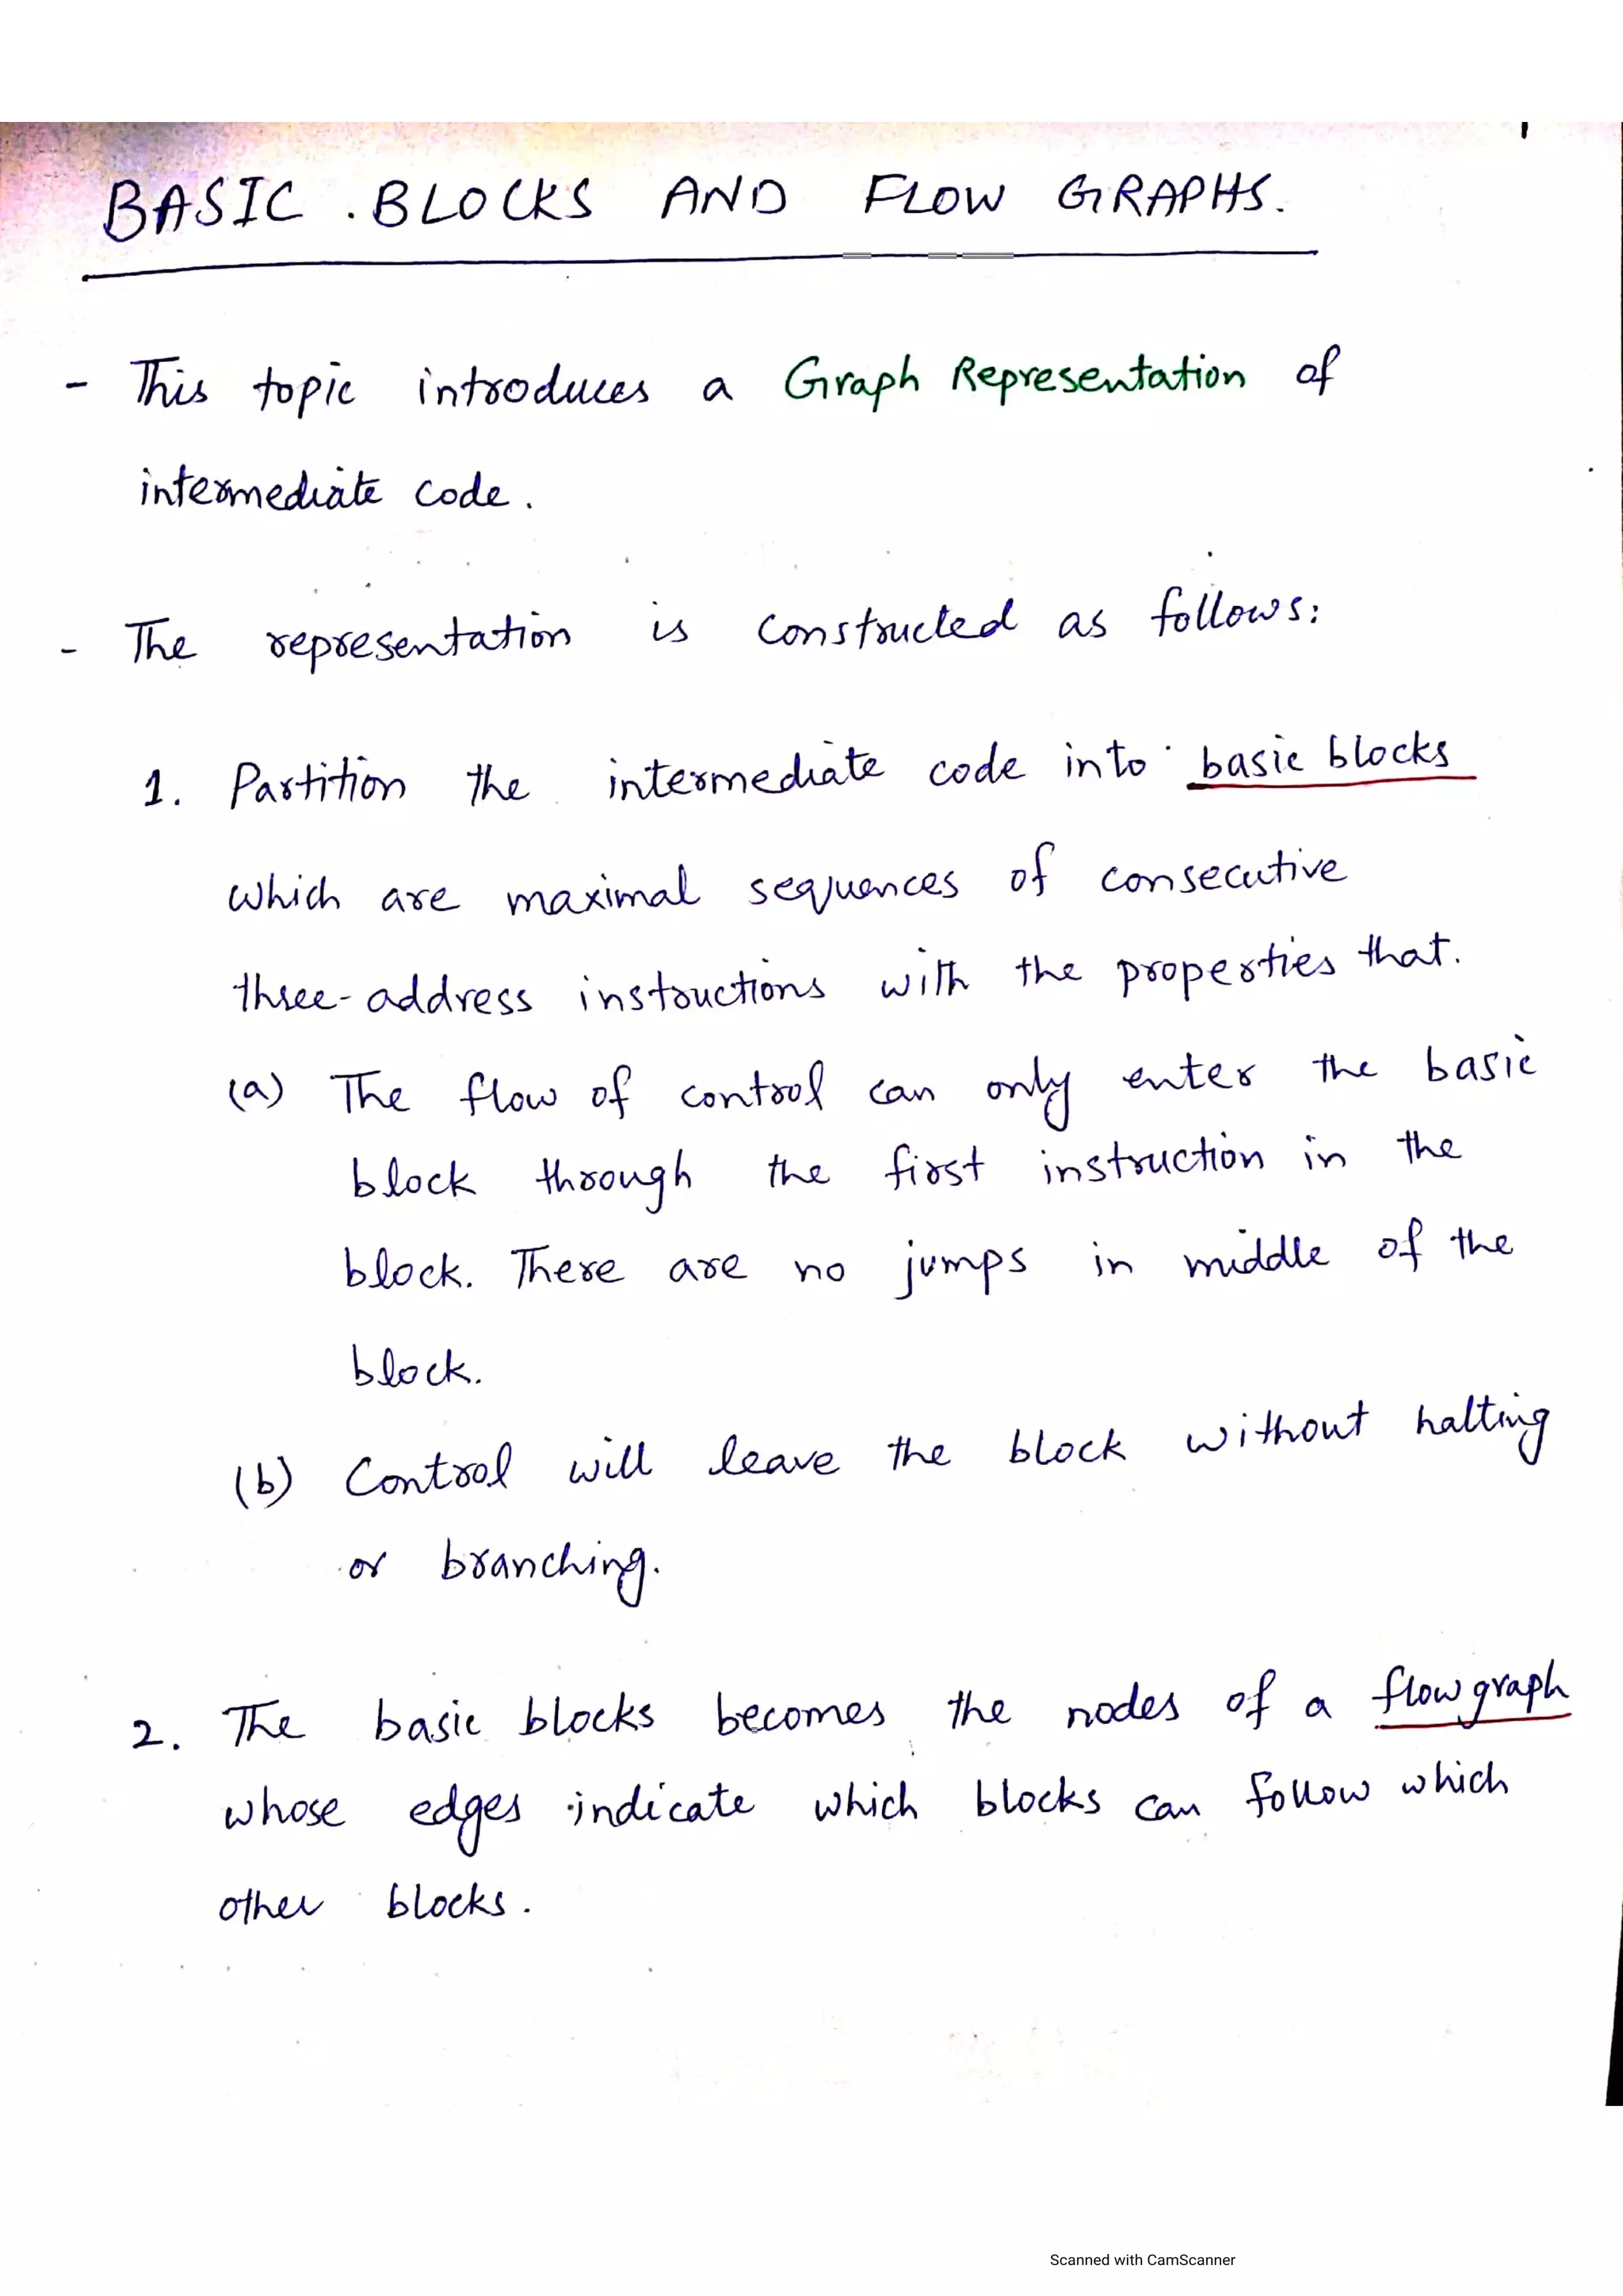 1
BASIC BLOCKS AND FLOW GRAPHS.
- This topic introduces a Graph Representation of
intermediate code.
- The representation is constructed as follows:
1. Partition the intermediate code into basic blocks
which are maximal sequences of consecutive
three-address instructions with the properties that.
(a) The flow of control can only enter the basic
block through the first instruction in the
block. There are no jumps in middle of the
block.
(b) Control will leave the block without halting
or branching.
2. The basic blocks becomes the nodes of a flow graph
whose edges indicate which blocks can follow which
other blocks.
Scanned with CamScanner